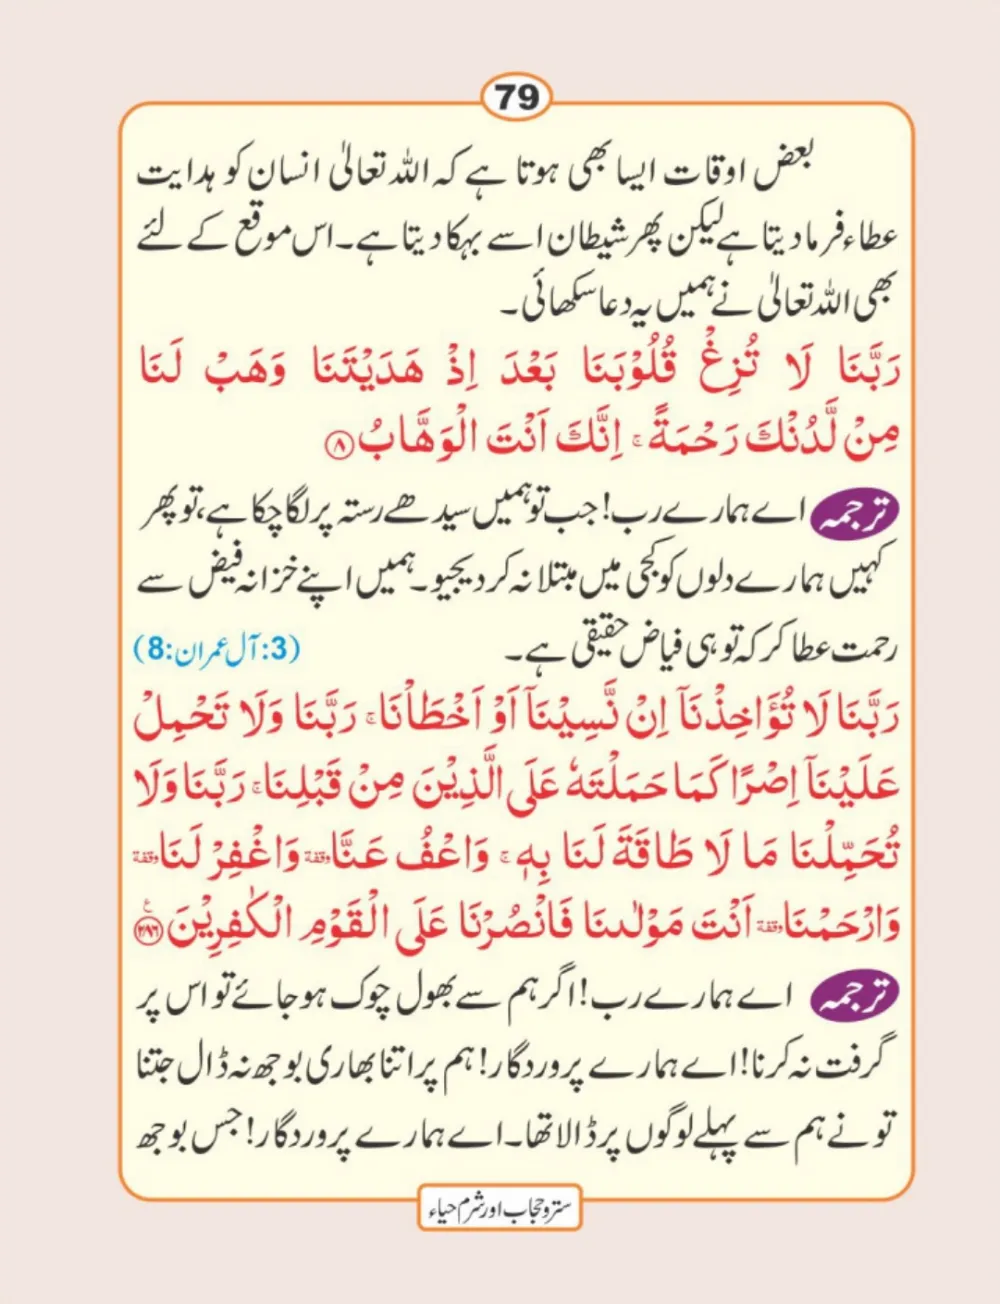 79
بعض اوقات ایسا بھی ہوتا ہے کہ اللہ تعالیٰ انسان کو ہدایت
عطاء فرما دیتا ہے لیکن پھر شیطان اسے بہکا دیتا ہے۔ اس موقع کے لئے
بھی اللہ تعالیٰ نے ہمیں یہ دعا سکھائی۔
رَبَّنَا لَا تُزِغْ قُلُوْبَنَا بَعْدَ اِذْ هَدَيْتَنَا وَهَبْ لَنَا
مِنْ لَّدُنْكَ رَحْمَةً ۚ اِنَّكَ اَنْتَ الْوَهَّابُ ﴿۸﴾
ترجمہ اے ہمارے رب! جب تو ہمیں سیدھے رستہ پر لگا چکا ہے، تو پھر
کہیں ہمارے دلوں کو کجی میں مبتلا نہ کر دیجیو۔ ہمیں اپنے خزانہ فیض سے
رحمت عطا کر کہ تو ہی فیاض حقیقی ہے۔ (3: آل عمران: 8)
رَبَّنَا لَا تُؤَاخِذْنَآ اِنْ نَّسِيْنَآ اَوْ اَخْطَاْنَا ۚ رَبَّنَا وَلَا تَحْمِلْ
عَلَيْنَآ اِصْرًا كَمَا حَمَلْتَهٗ عَلَى الَّذِيْنَ مِنْ قَبْلِنَا ۚ رَبَّنَا وَلَا
تُحَمِّلْنَا مَا لَا طَاقَةَ لَنَا بِهٖ ۚ وَاعْفُ عَنَّا وقفة وَاغْفِرْ لَنَا وقفة
وَارْحَمْنَا وقفة اَنْتَ مَوْلٰىنَا فَانْصُرْنَا عَلَى الْقَوْمِ الْكٰفِرِيْنَ ﴿۲۸۶﴾ ع
ترجمہ اے ہمارے رب! اگر ہم سے بھول چوک ہو جائے تو اس پر
گرفت نہ کرنا! اے ہمارے پروردگار! ہم پر اتنا بھاری بوجھ نہ ڈال جتنا
تو نے ہم سے پہلے لوگوں پر ڈالا تھا۔ اے ہمارے پروردگار! جس بوجھ
ستر و حجاب اور شرم حیاء